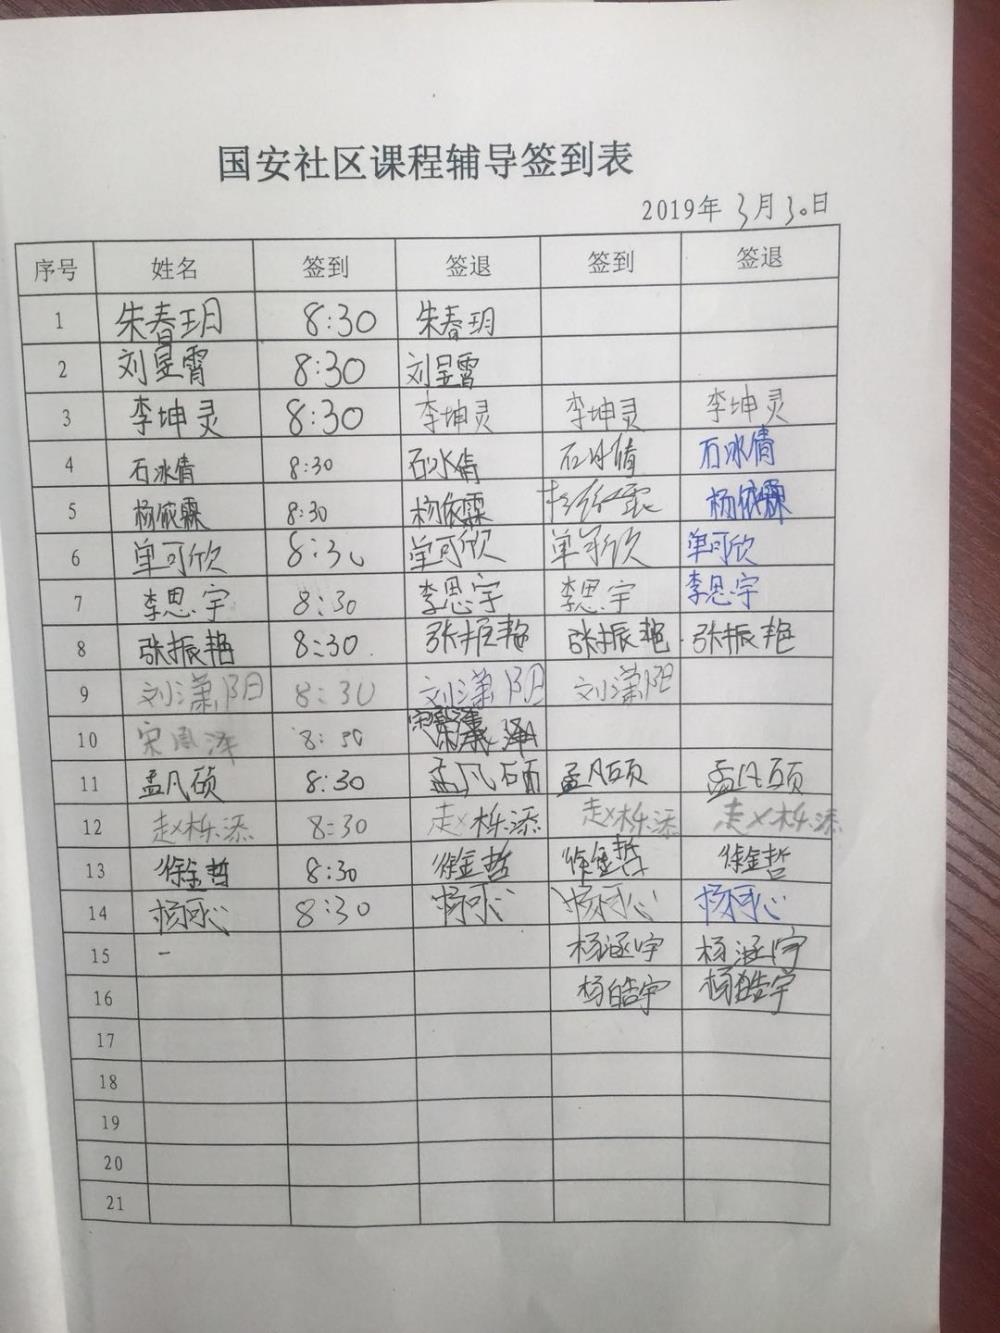 国安社区课程辅导签到表
2019年 3月30日
序号 姓名 签到 签退 签到 签退
1 朱春玥 8:30 朱春玥
2 刘昱霄 8:30 刘昱霄
3 李坤灵 8:30 李坤灵 李坤灵 李坤灵
4 石冰倩 8:30 石冰倩 石冰倩 石冰倩
5 杨依霖 8:30 杨依霖 杨依霖 杨依霖
6 单可欣 8:30 单可欣 单可欣 单可欣
7 李思宇 8:30 李思宇 李思宇 李思宇
8 张振艳 8:30 张振艳 张振艳 张振艳
9 刘潇阳 8:30 刘潇阳 刘潇阳
10 8:30
11 孟凡硕 8:30 孟凡硕 孟凡硕 孟凡硕
12 赵栎添 8:30 赵栎添 赵栎添 赵栎添
13 徐金哲 8:30 徐金哲 徐金哲 徐金哲
14 杨可心 8:30 杨可心 杨可心 杨可心
15 - 杨涵宇 杨涵宇
16 杨皓宇 杨皓宇
17
18
19
20
21